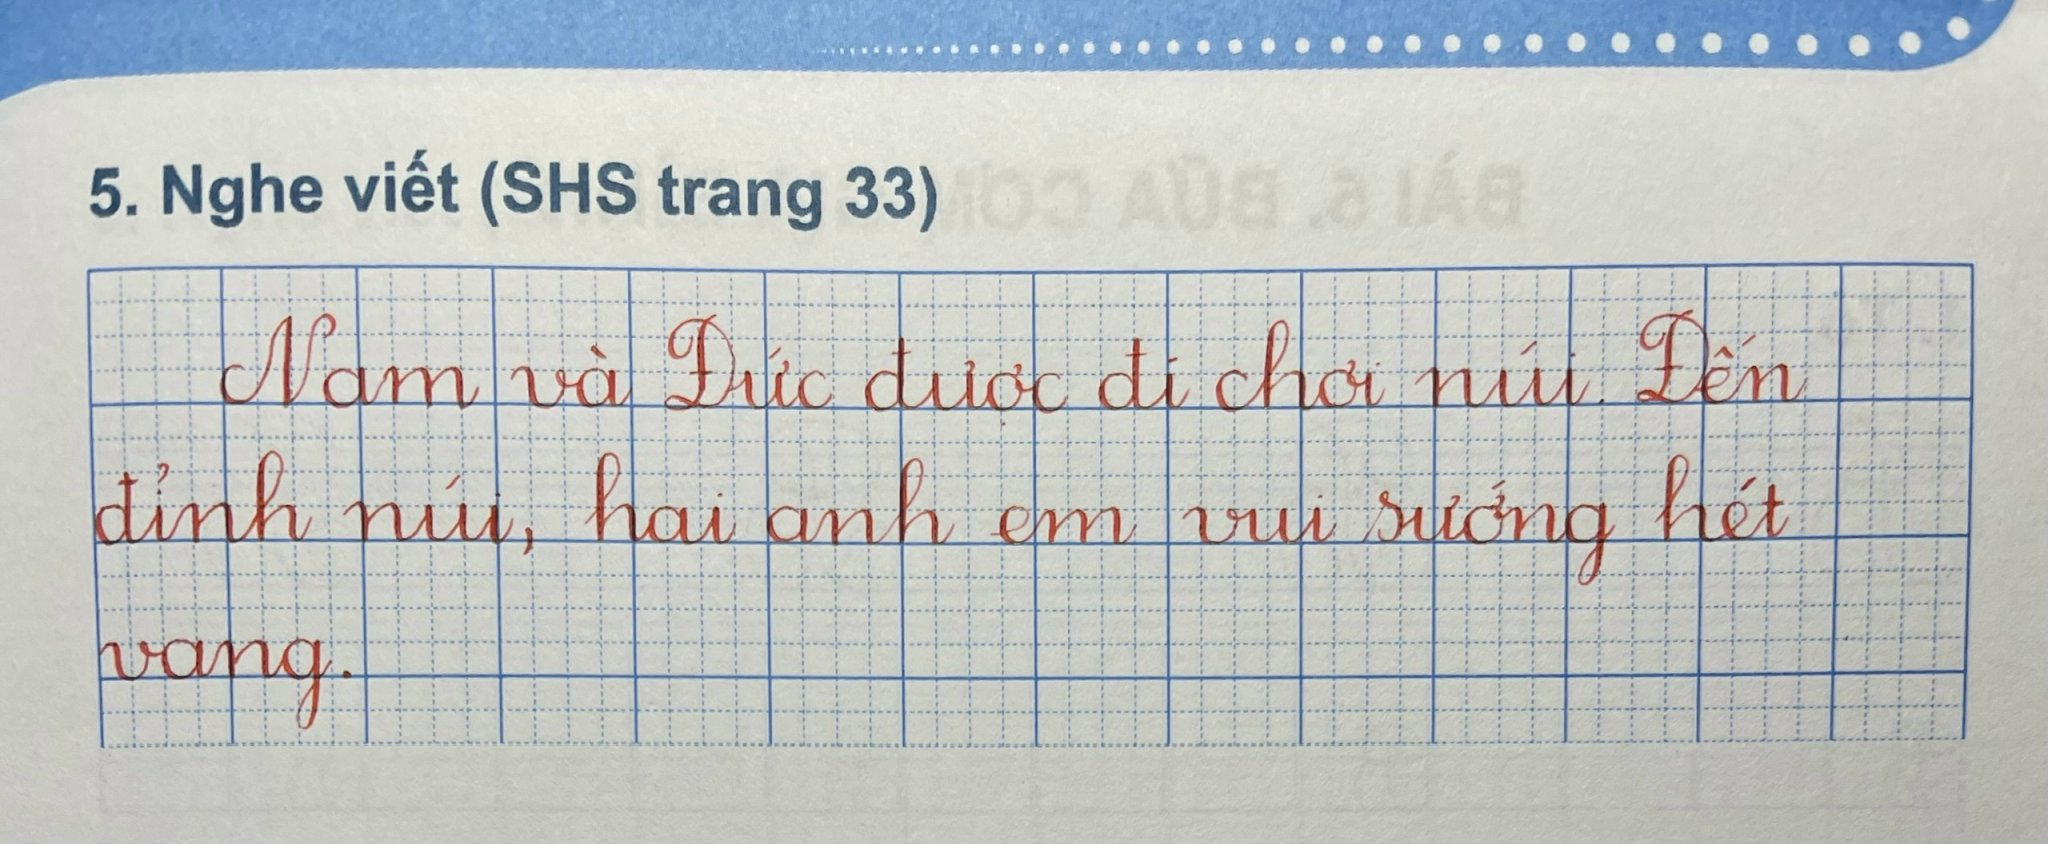 5. Nghe viết (SHS trang 33)
Nam và Đức được đi chơi núi. Đến
đỉnh núi, hai anh em vui sướng hét
vang.